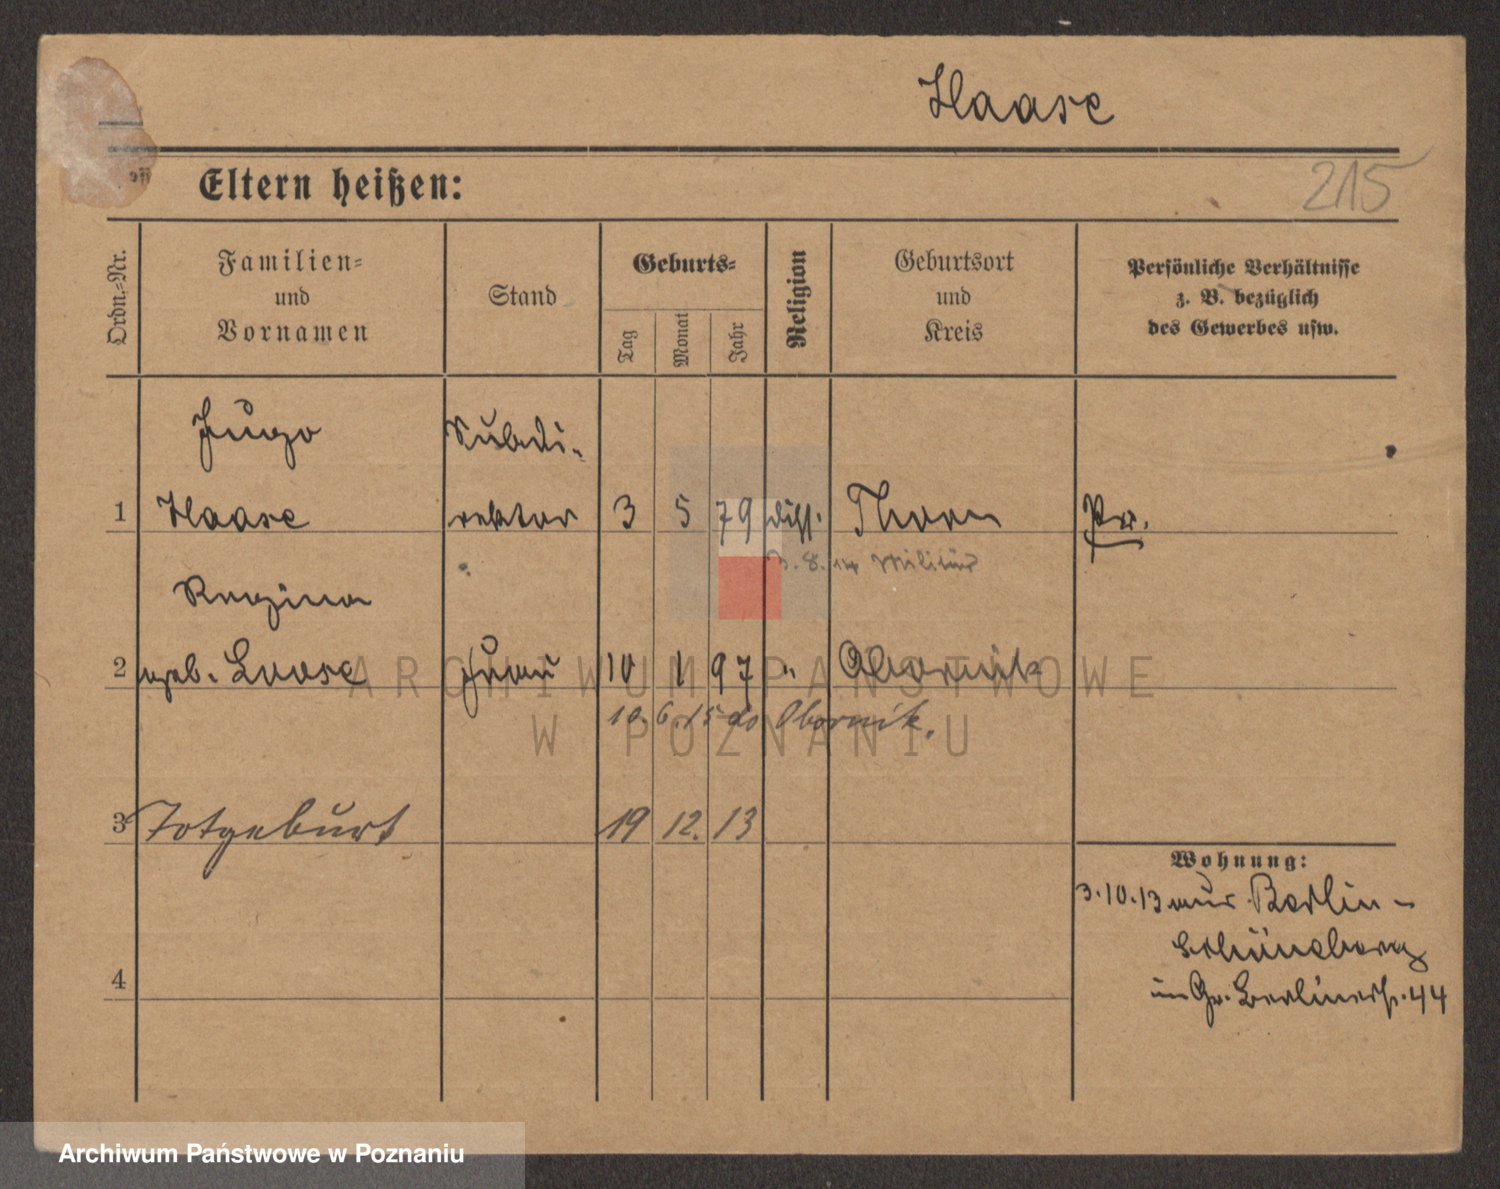 Haase
Eltern heißen:
215
Ordn.-Nr.
Familien-
und
Vornamen
Stand
Geburts-
Tag
Monat
Jahr
Religion
Geburtsort
und
Kreis
Persönliche Verhältnisse
z. B. bezüglich
des Gewerbes usw.
Hugo Subdi-
1 Haase rektor 3 5 79 diss. Thorn Pr.
z. B. im Militär
Regina
2 geb. Loose Frau 10 1 97 " Obornik
10. 6. 15 do Obornik.
3 Totgeburt 19 12. 13
Wohnung:
3.10.13 aus Berlin-
Schöneberg
in Gr. Berlinerstr. 44
4
ARCHIWUM PAŃSTWOWE
W POZNANIU
Archiwum Państwowe w Poznaniu